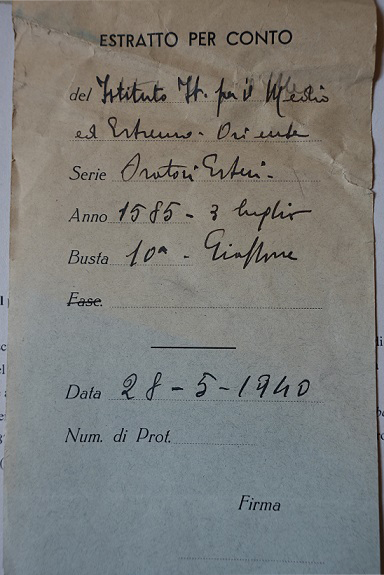 ESTRATTO PER CONTO
del Istituto It. per il Medio
ed Estremo - Oriente
Serie Oratori Esteri -
Anno 1585 - 3 luglio
Busta 10ª - Giappone
Fasc.
Data 28-5-1940
Num. di Prot.
Firma